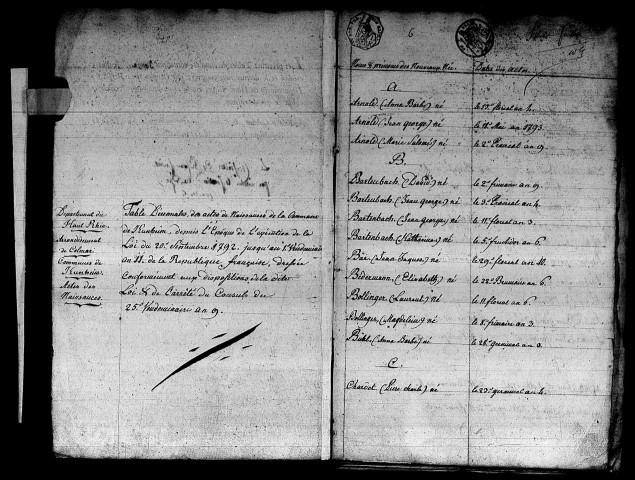 Département du
Haut Rhin.
Arrondissement
de Colmar
Commune de
Kunheim.
Actes des
Naissances.
Table Décennale, des actes de Naissances de la Commune
de Kunheim, depuis l'Epoque de l'opération de la
Loi du 20. Septembre 1792. jusqu'au 1. Vendémiaire
an 11. de la République française, dressée
conformément aux dispositions de la dite
Loi & de l'arrêté du Consuls du
25. Vendémiaire an 9.
6
Noms & prénoms des Nouveaux Nés.
Dates des actes.
A
Arnold (Anna Barbe) né le 17. floréal an 4.
Arnold (Jean george) né le 18. Mai an 1793.
Arnold (Marie Salomé) né le 2. Prairial an 9.
B.
Bartenbach (David) né le 2. frimaire an 9.
Bartenbach (Jean george) né le 3. Prairial an 4.
Bartenbach (Jean george) né le 11. floréal an 3.
Bartenbach (Catherine) né le 5. fructidor an 6.
Bär (Jean Jaques) né le 29. floréal an 11.
Bidermann (Elisabeth) né le 22. Brumaire an 6.
Bollinger (Laurent) né le 11. floréal an 6.
Bollinger (Magdeleine) né le 8. frimaire an 3.
Bühl (Anne Barbe) né le 28. germinal an 3.
C.
Chardot (Pierre charles) né le 23. germinal an 4.